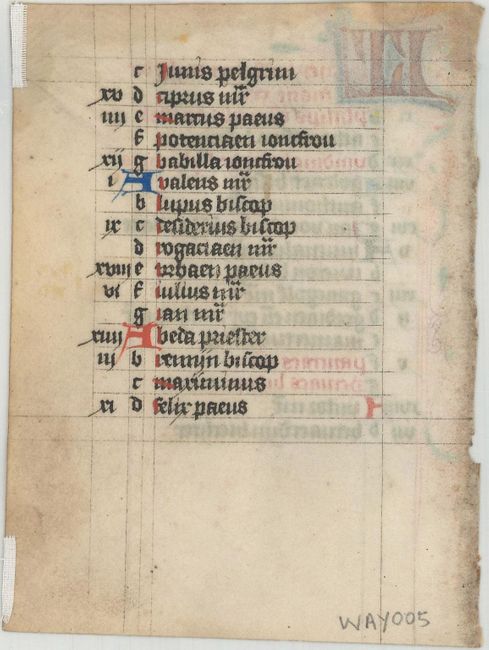 c Junis pelgrim
xv d ciprus mr̄
iiij e marcus paeus
f potenciaen ioncfrou
xij g babilla ioncfrou
i A valens mr̄
b lupus biscop
ix c desiderius biscop
d rogaciaen mr̄
xviij e vrbaen paeus
vi f iulius mr̄
g ian mr̄
xiiij A beda priester
iij b remijn biscop
c maximinus
xi d felix paeus
WAY005